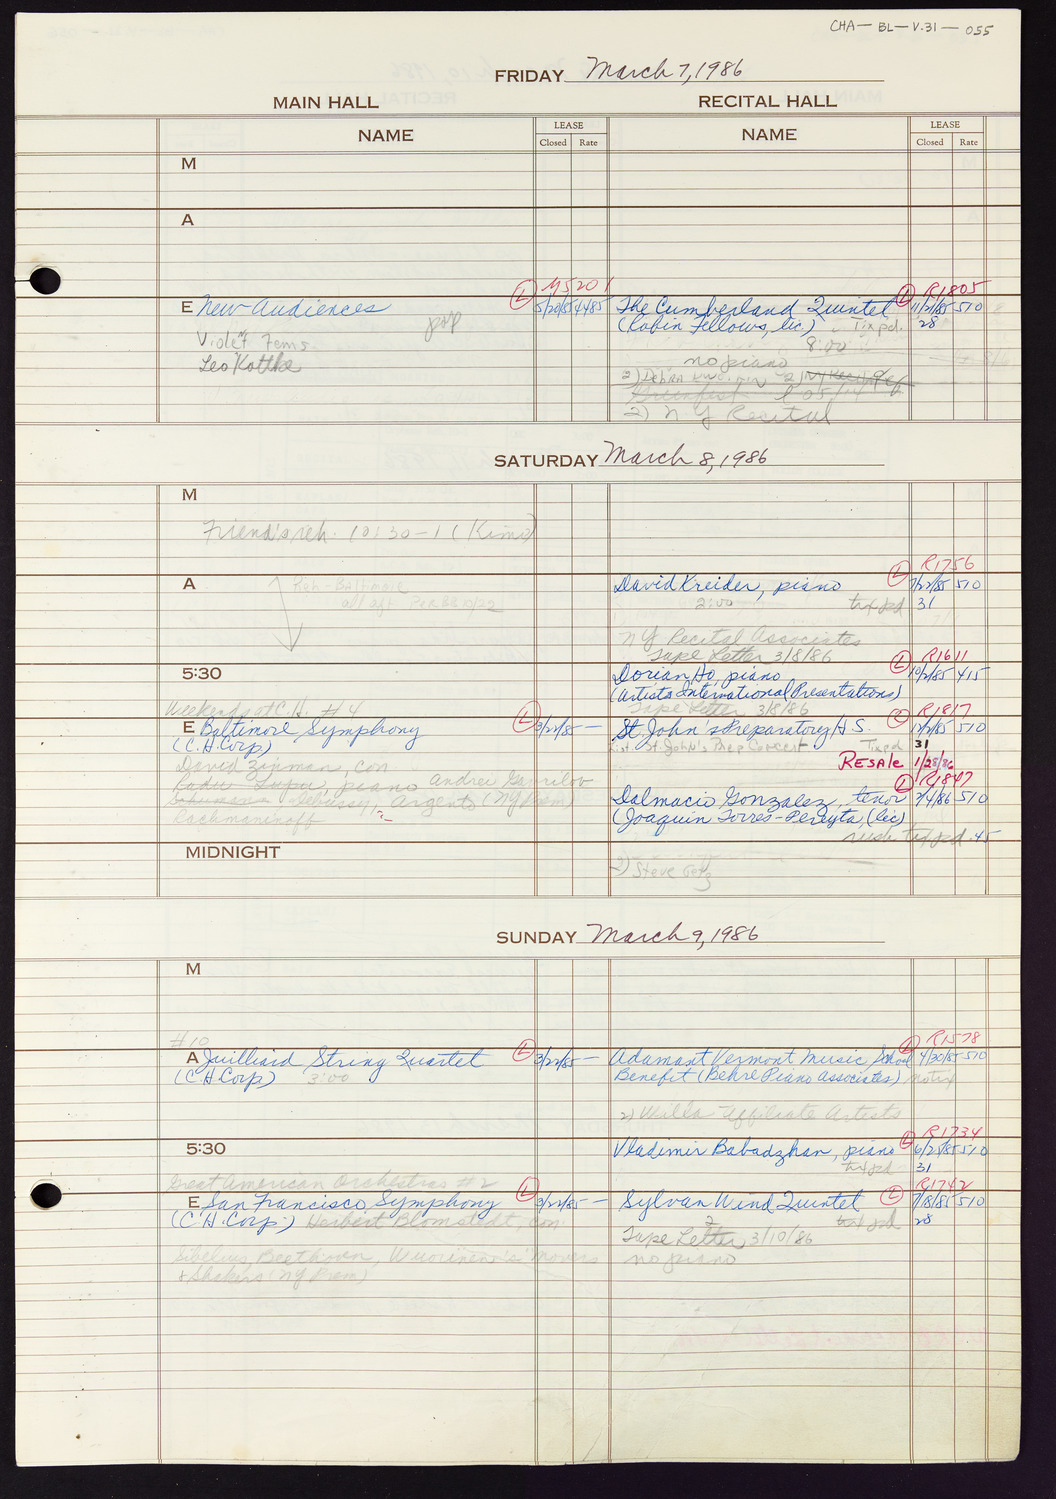 CHA - BL - V.31 - 055
FRIDAY March 7, 1986
MAIN HALL
RECITAL HALL
NAME
LEASE
Closed Rate
NAME
LEASE
Closed Rate
M
A
M5201
E New Audiences L 5/20/85 4485
pop
Violet Fems.
Leo Kottke
R1805
The Cumberland Quintet L 11/21/85 510
(Robin Fellows, lic) Tix pd. 28
8:00
no piano
2) N Y Recital
SATURDAY March 8, 1986
M
Friend's reh. 10:30-1 (Kimo)
A
Reh - Baltimore
all aft per BB 10/22
R1756
David Kreider, piano L 7/22/85 510
2:00 tix pd 31
NY Recital Associates
Tape Letter 3/8/86
5:30
R1611
Dorian Ho, piano L 10/2/85 415
(Artists International Presentations)
Tape Letter 3/8/86
Weekends at C.H. #4
E Baltimore Symphony L 3/22/85 —
(C.H. Corp)
David Zinman, con
Radu Lupu, piano Andrei Gavrilov
Schumann Debussy, Argento (NY Prem)
Rachmaninoff
R1817
St. John's Preparatory H.S. 510
St. John's Prep Concert Tix pd 31
RESALE 1/28/86
R1847
Dalmacio Gonzalez, tenor L 2/4/86 510
(Joaquin Torres-Pereyta, lic)
rush tix pd .45
MIDNIGHT
2) Steve Getz
SUNDAY March 9, 1986
M
#10
A Juilliard String Quartet L 3/22/85 —
(C.H. Corp) 3:00
R1578
Adamant Vermont Music School L 4/30/85 510
Benefit (Behre Piano Associates) no tix
2) Willa Affiliate Artists
5:30
R1734
Vladimir Babadzhan, piano L 6/28/85 510
tix pd 31
Great American Orchestras #2
E San Francisco Symphony L 3/22/85 —
(C.H. Corp.) Herbert Blomstedt, con
Sibelius, Beethoven, Wuorinen's "Movers
& Shakers (NY Prem)
R1742
Sylvan Wind Quintet L 7/8/85 510
2 tix pd 28
Tape Letter, 3/10/86
no piano